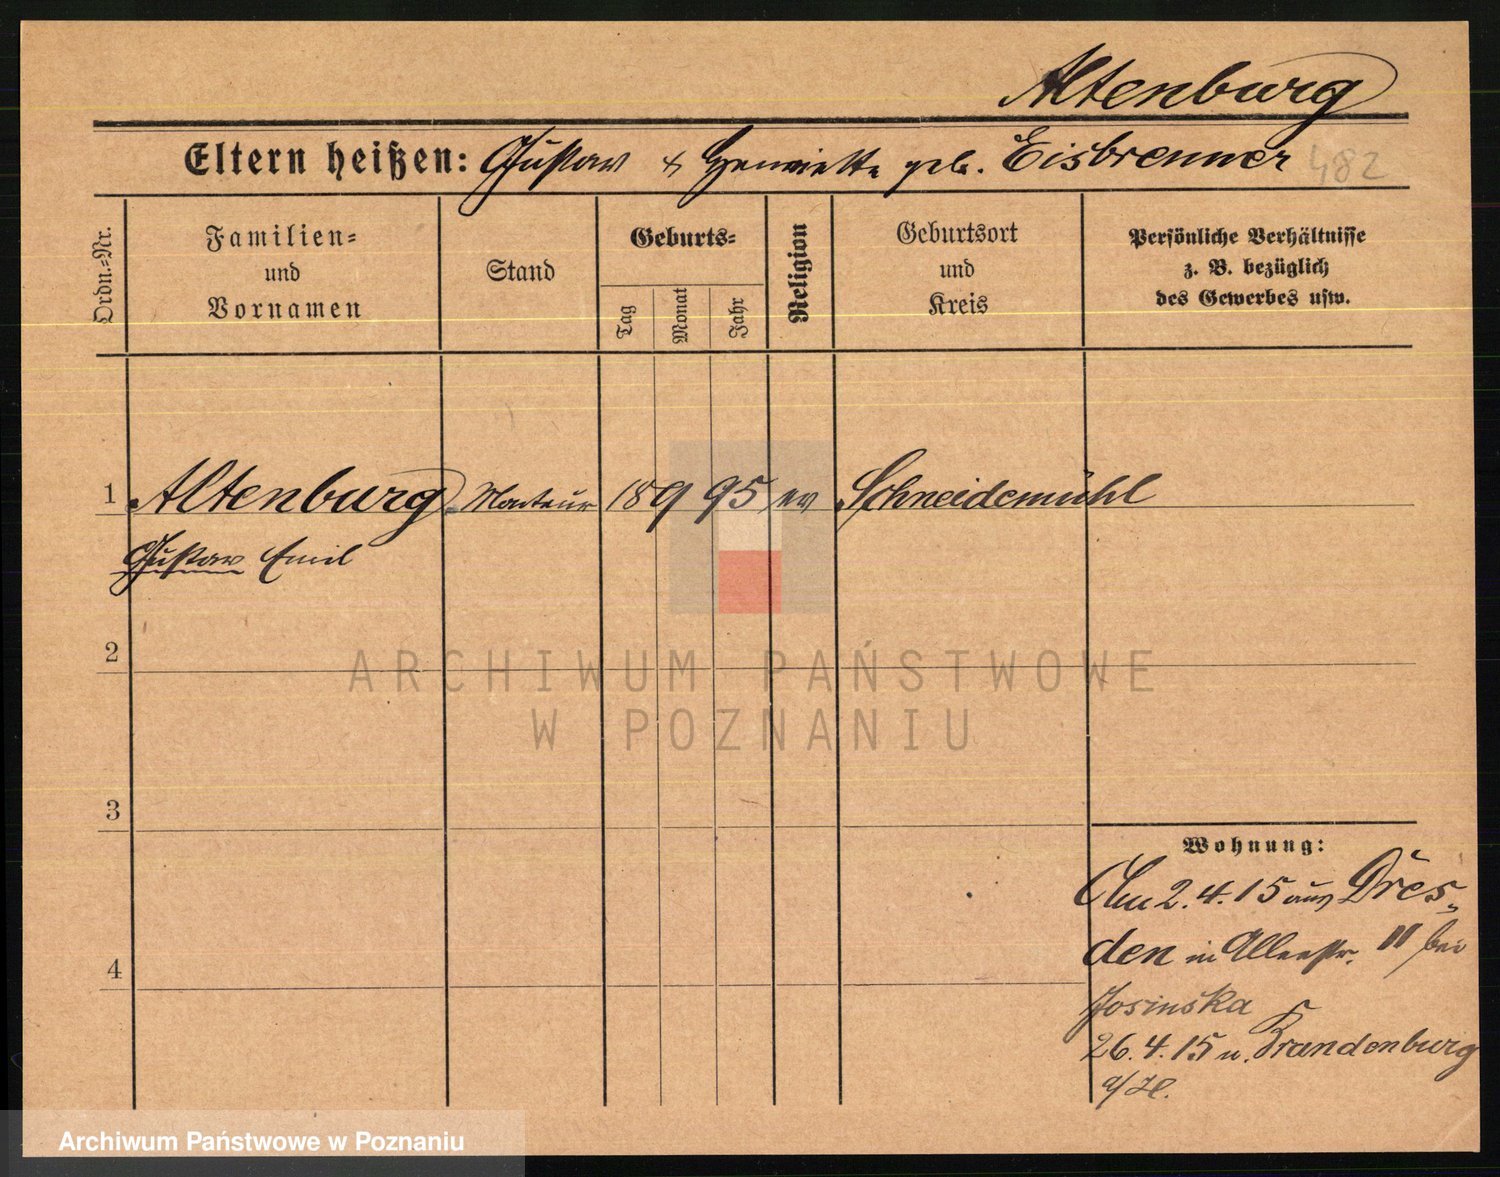 Altenburg
Eltern heißen: Gustav & Henriette geb. Eisbrenner 482
Ordn.=Nr.
Familien=
und
Vornamen
Stand
Geburts=
Tag
Monat
Jahr
Religion
Geburtsort
und
Kreis
Persönliche Verhältnisse
z. B. bezüglich
des Gewerbes usw.
1 Altenburg Monteur 18 9 95 ev Schneidemühl
Gustav Emil
2
ARCHIWUM PAŃSTWOWE
W POZNANIU
3
Wohnung:
Am 2.4.15 aus Dres=
den in Alleestr. 11 bei
4
Josinska
26.4.15 n. Brandenburg
a/H.
Archiwum Państwowe w Poznaniu